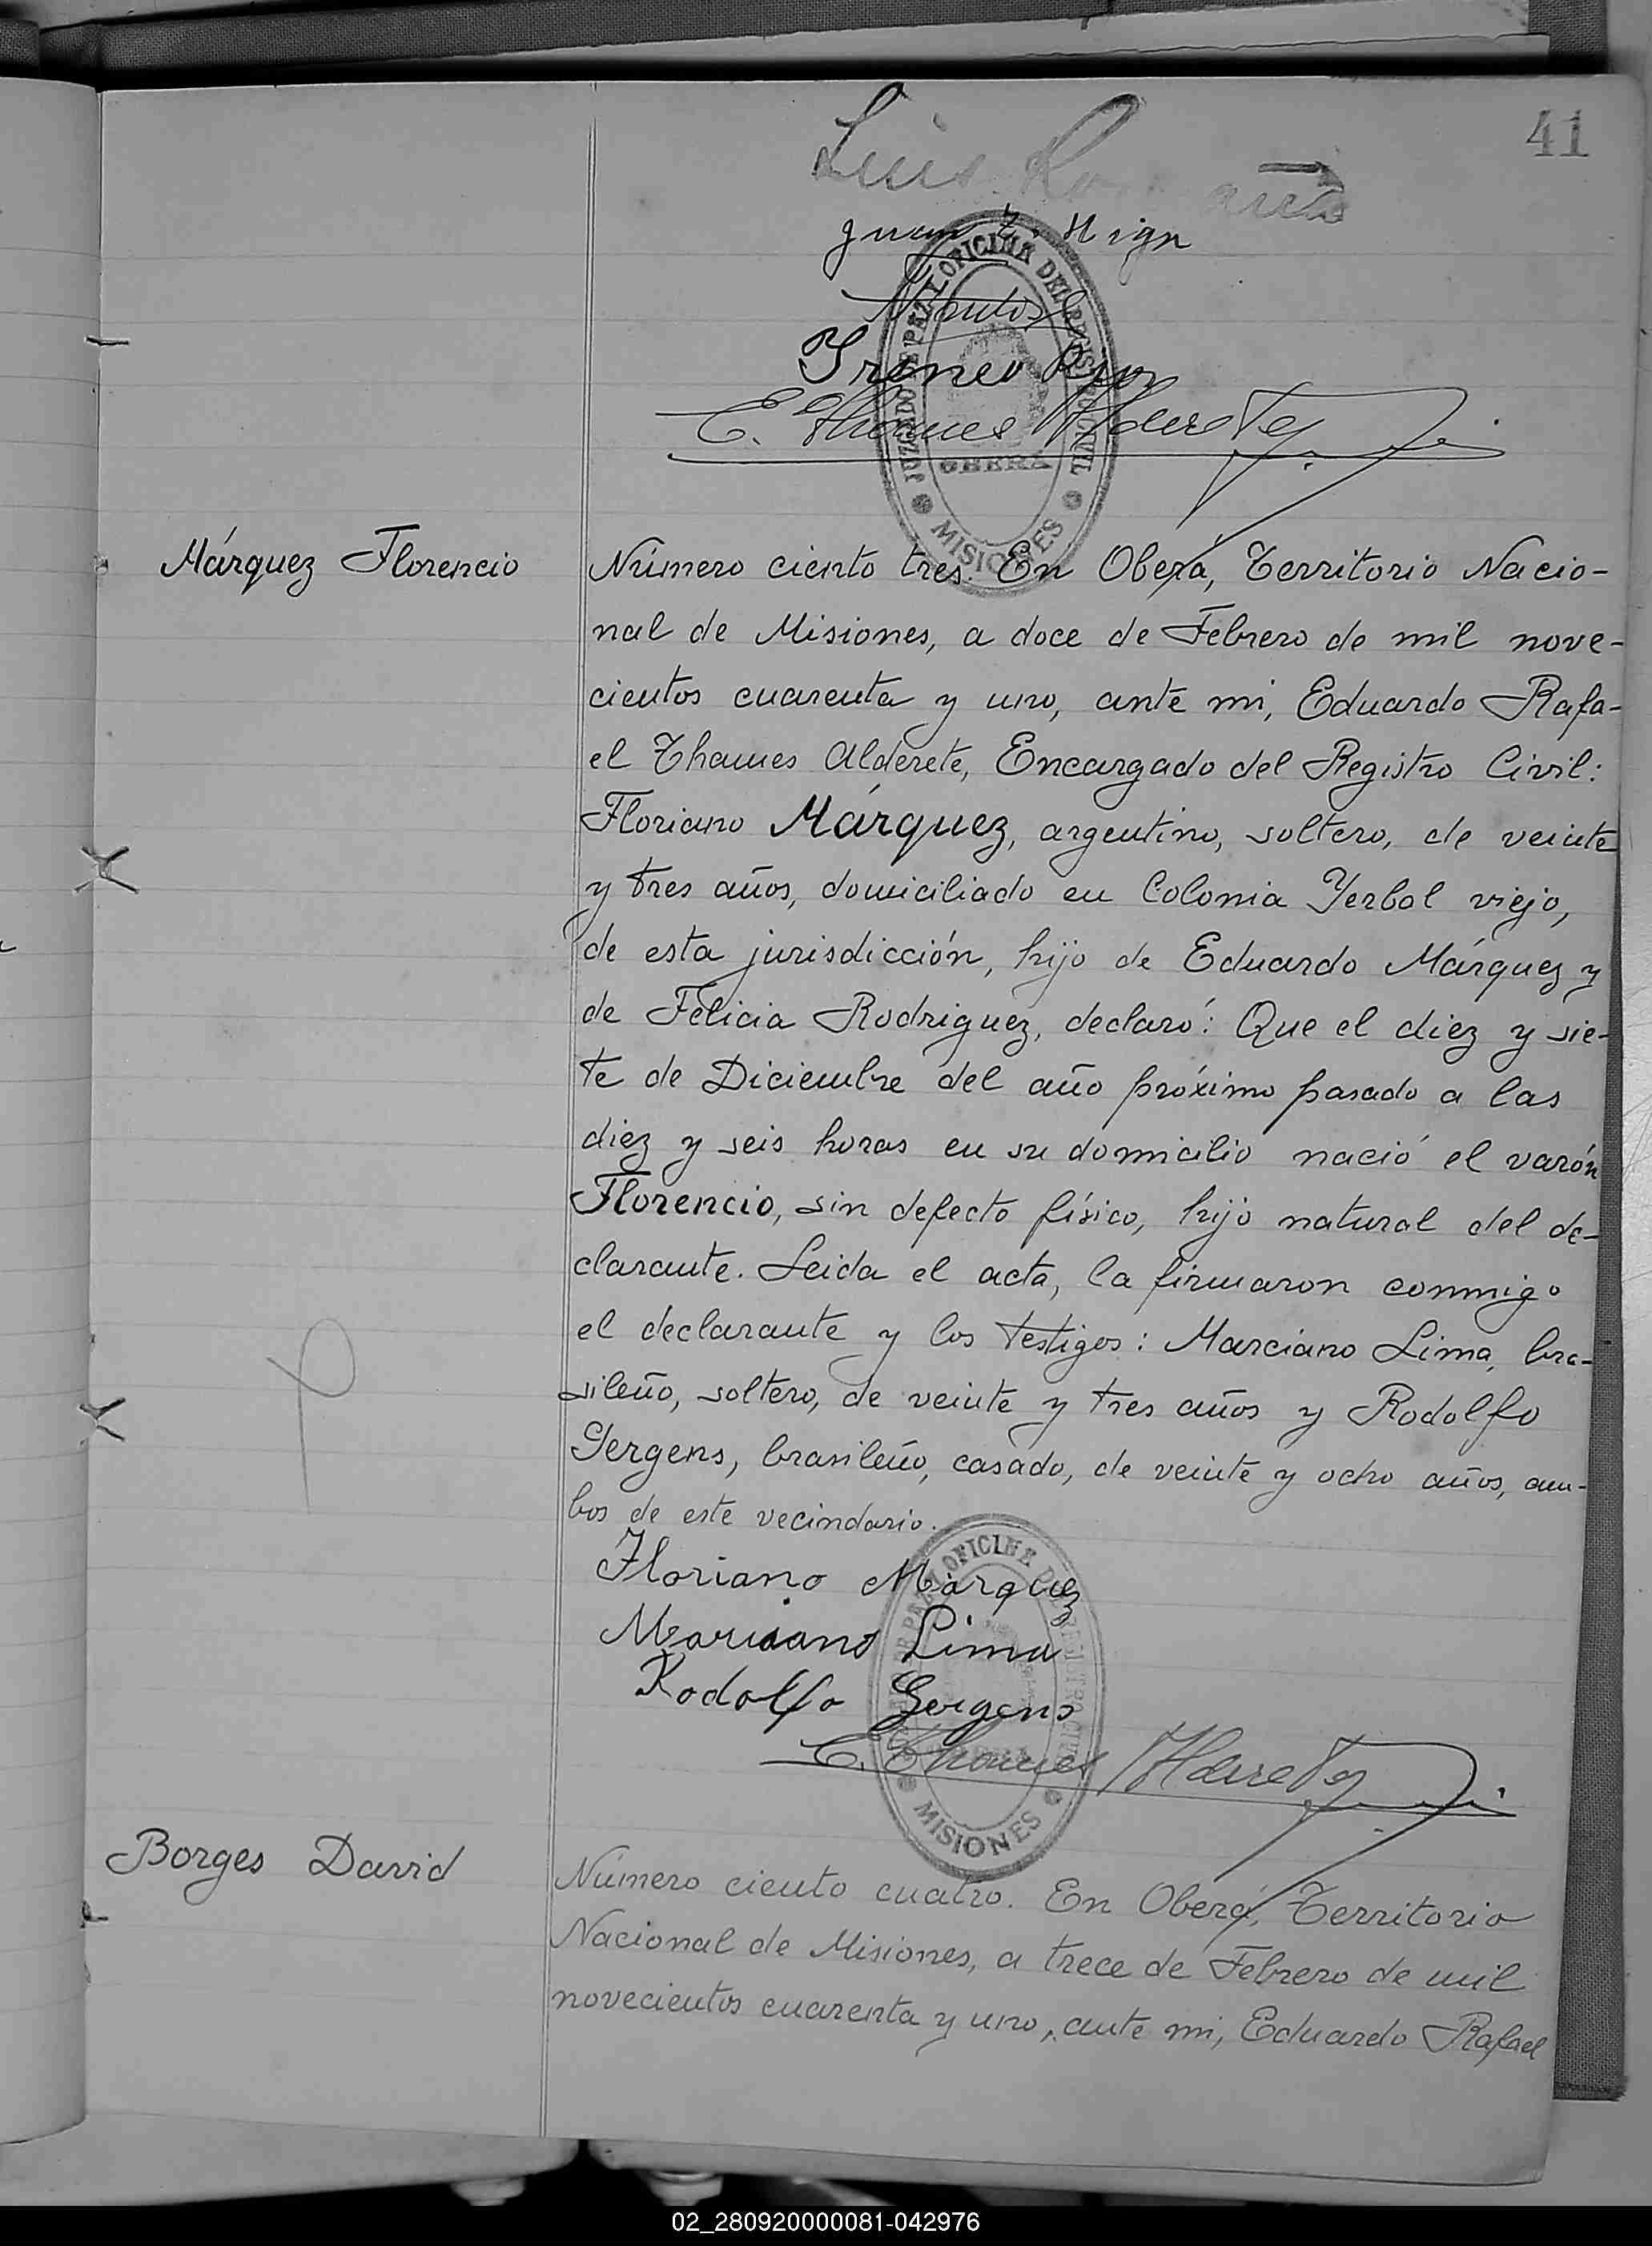 41
Luis
Juan
Ireneo
E. Thames Alderete
JUZGADO DE PAZ Y OFICINA DEL REGISTRO CIVIL
OBERÁ
MISIONES
Márquez Florencio
Número ciento tres. En Oberá, Territorio Nacio-
nal de Misiones, a doce de Febrero de mil nove-
cientos cuarenta y uno, ante mi, Eduardo Rafa-
el Thames Alderete, Encargado del Registro Civil:
Floriano Márquez, argentino, soltero, de veinte
y tres años, domiciliado en Colonia Yerbal viejo,
de esta jurisdicción, hijo de Eduardo Márquez y
de Felicia Rodriguez, declaró: Que el diez y sie-
te de Diciembre del año próximo pasado a las
diez y seis horas en su domicilio nació el varón
Florencio, sin defecto físico, hijo natural del de-
clarante. Leida el acta, la firmaron conmigo
el declarante y los testigos: Marciano Lima, bra-
sileño, soltero, de veinte y tres años y Rodolfo
Gergens, brasileño, casado, de veinte y ocho años, am-
bos de este vecindario.
Floriano Márquez
Marciano Lima
Rodolfo Gergens
E. Thames Alderete
MISIONES
Borges David
Número ciento cuatro. En Oberá, Territorio
Nacional de Misiones, a trece de Febrero de mil
novecientos cuarenta y uno, ante mi, Eduardo Rafael
02_280920000081-042976